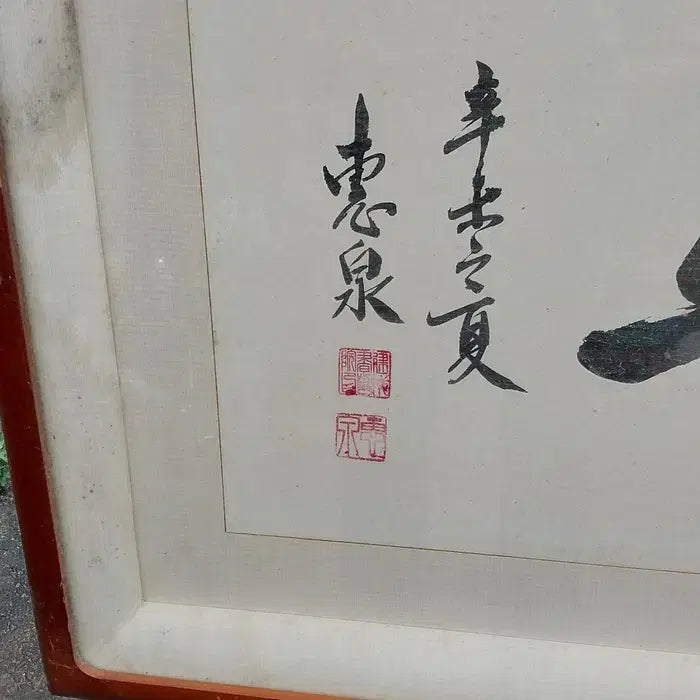 辛未之夏
惠泉
惠泉